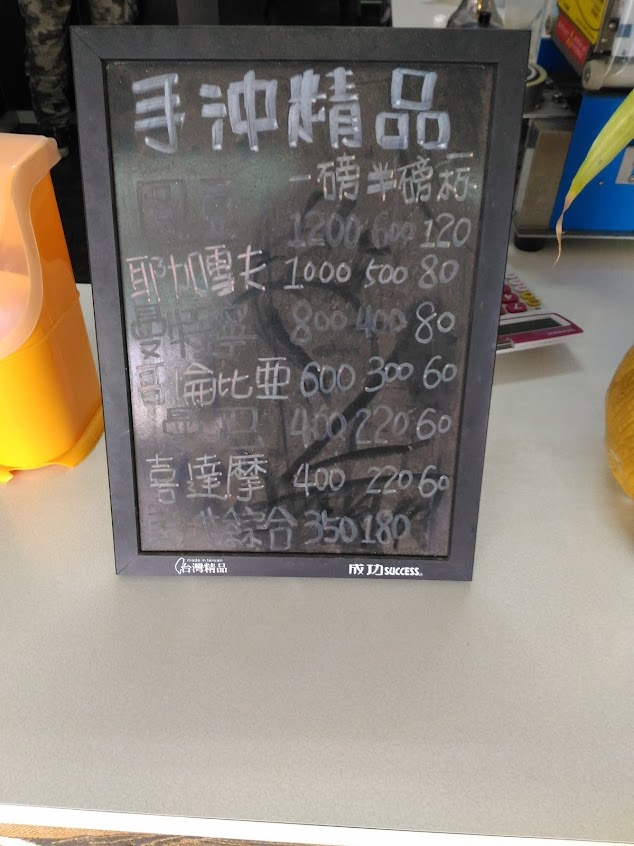 手沖精品
一磅 半磅 一杯
1200 600 120
耶加雪夫 1000 500 80
曼特寧 800 400 80
哥倫比亞 600 300 60
400 220 60
喜達摩 400 220 60
綜合 350 180
made in taiwan
台灣精品 成功 SUCCESS®